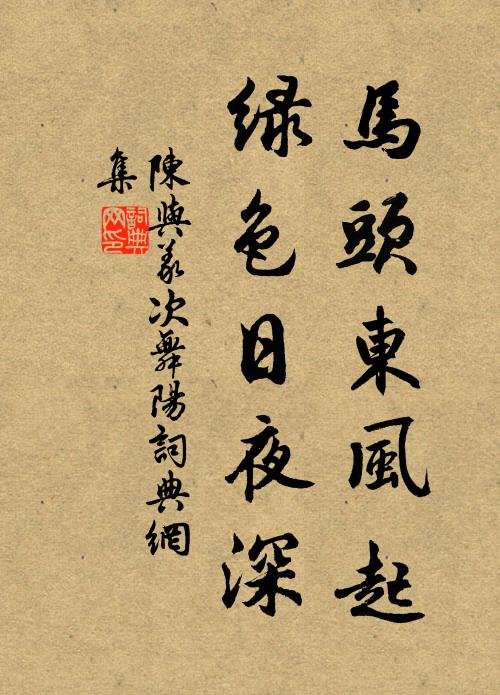 馬頭東風起
綠色日夜深
陳與義次舞陽詞典網
集
詞典
网印